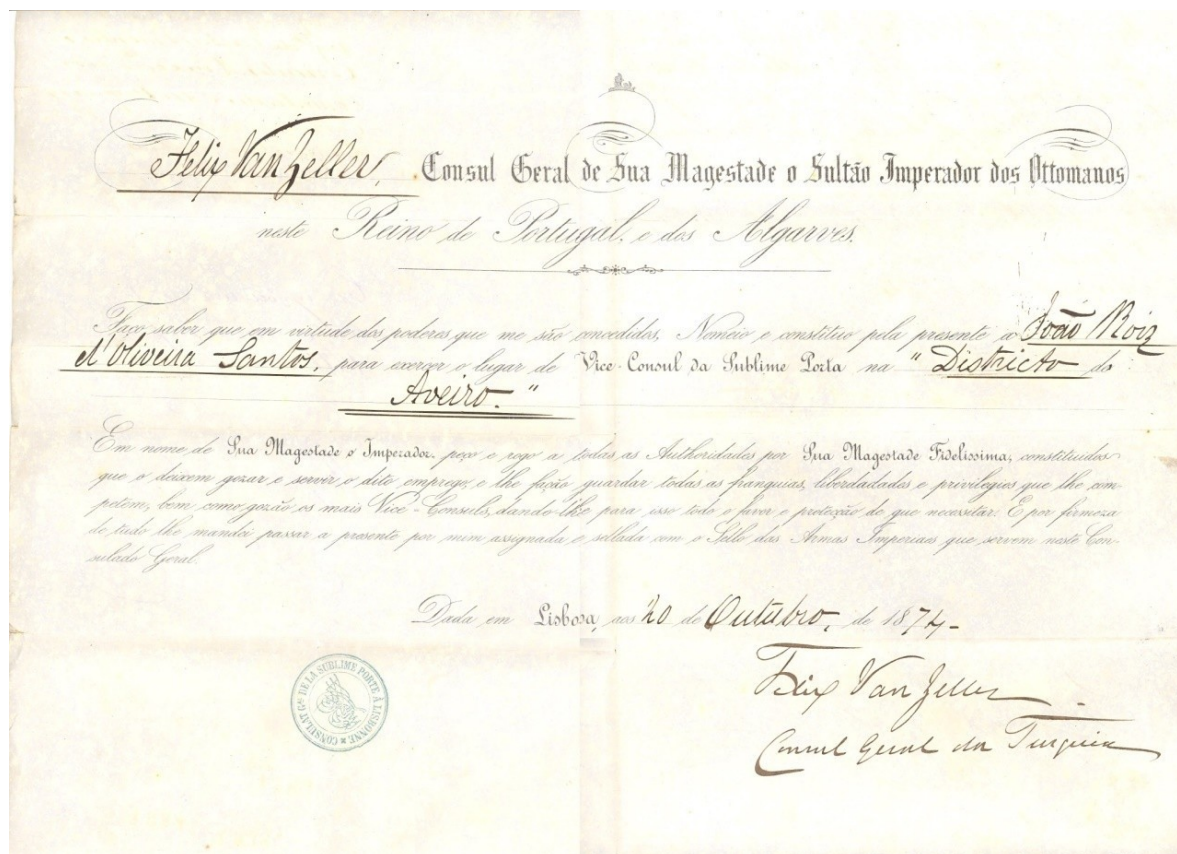 Felix Van Zeller, Consul Geral de Sua Magestade o Sultão Imperador dos Ottomanos
neste Reino de Portugal, e dos Algarves.
Faço saber que em virtude dos poderes que me são concedidos, Nomeio e constituo pela presente a João Roiz
d'Oliveira Santos, para exercer o lugar de Vice-Consul da Sublime Porta na "Districto de
Aveiro."
Em nome de Sua Magestade o Imperador, peço e rogo a todas as Authoridades por Sua Magestade Fidelissima, constituidas
que o deixem gozar e servir o dito emprego, e lhe fação guardar todas as franquias, liberdadades e privilegios que lhe com-
petem, bem como gozão os mais Vice-Consuls, dando-lhe para isso todo o favor e proteção de que necessitar. E por firmeza
de tudo lhe mandei passar a presente por mim assignada e sellada com o Sello das Armas Imperiaes que servem neste Con-
sulado Geral.
Dada em Lisboa, aos 20 de Outubro, de 1874-
Felix Van Zeller
Consul Geral da Turquia
CONSULAT Gal DE LA SUBLIME PORTE À LISBONNE